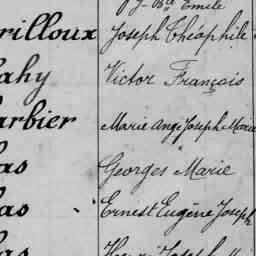 J. Bte Emile
rilloux Joseph Théophile
ahy Victor François
arbier Marie Ange Joseph Marie
as Georges Marie
as Ernest Eugène Joseph
as Joseph